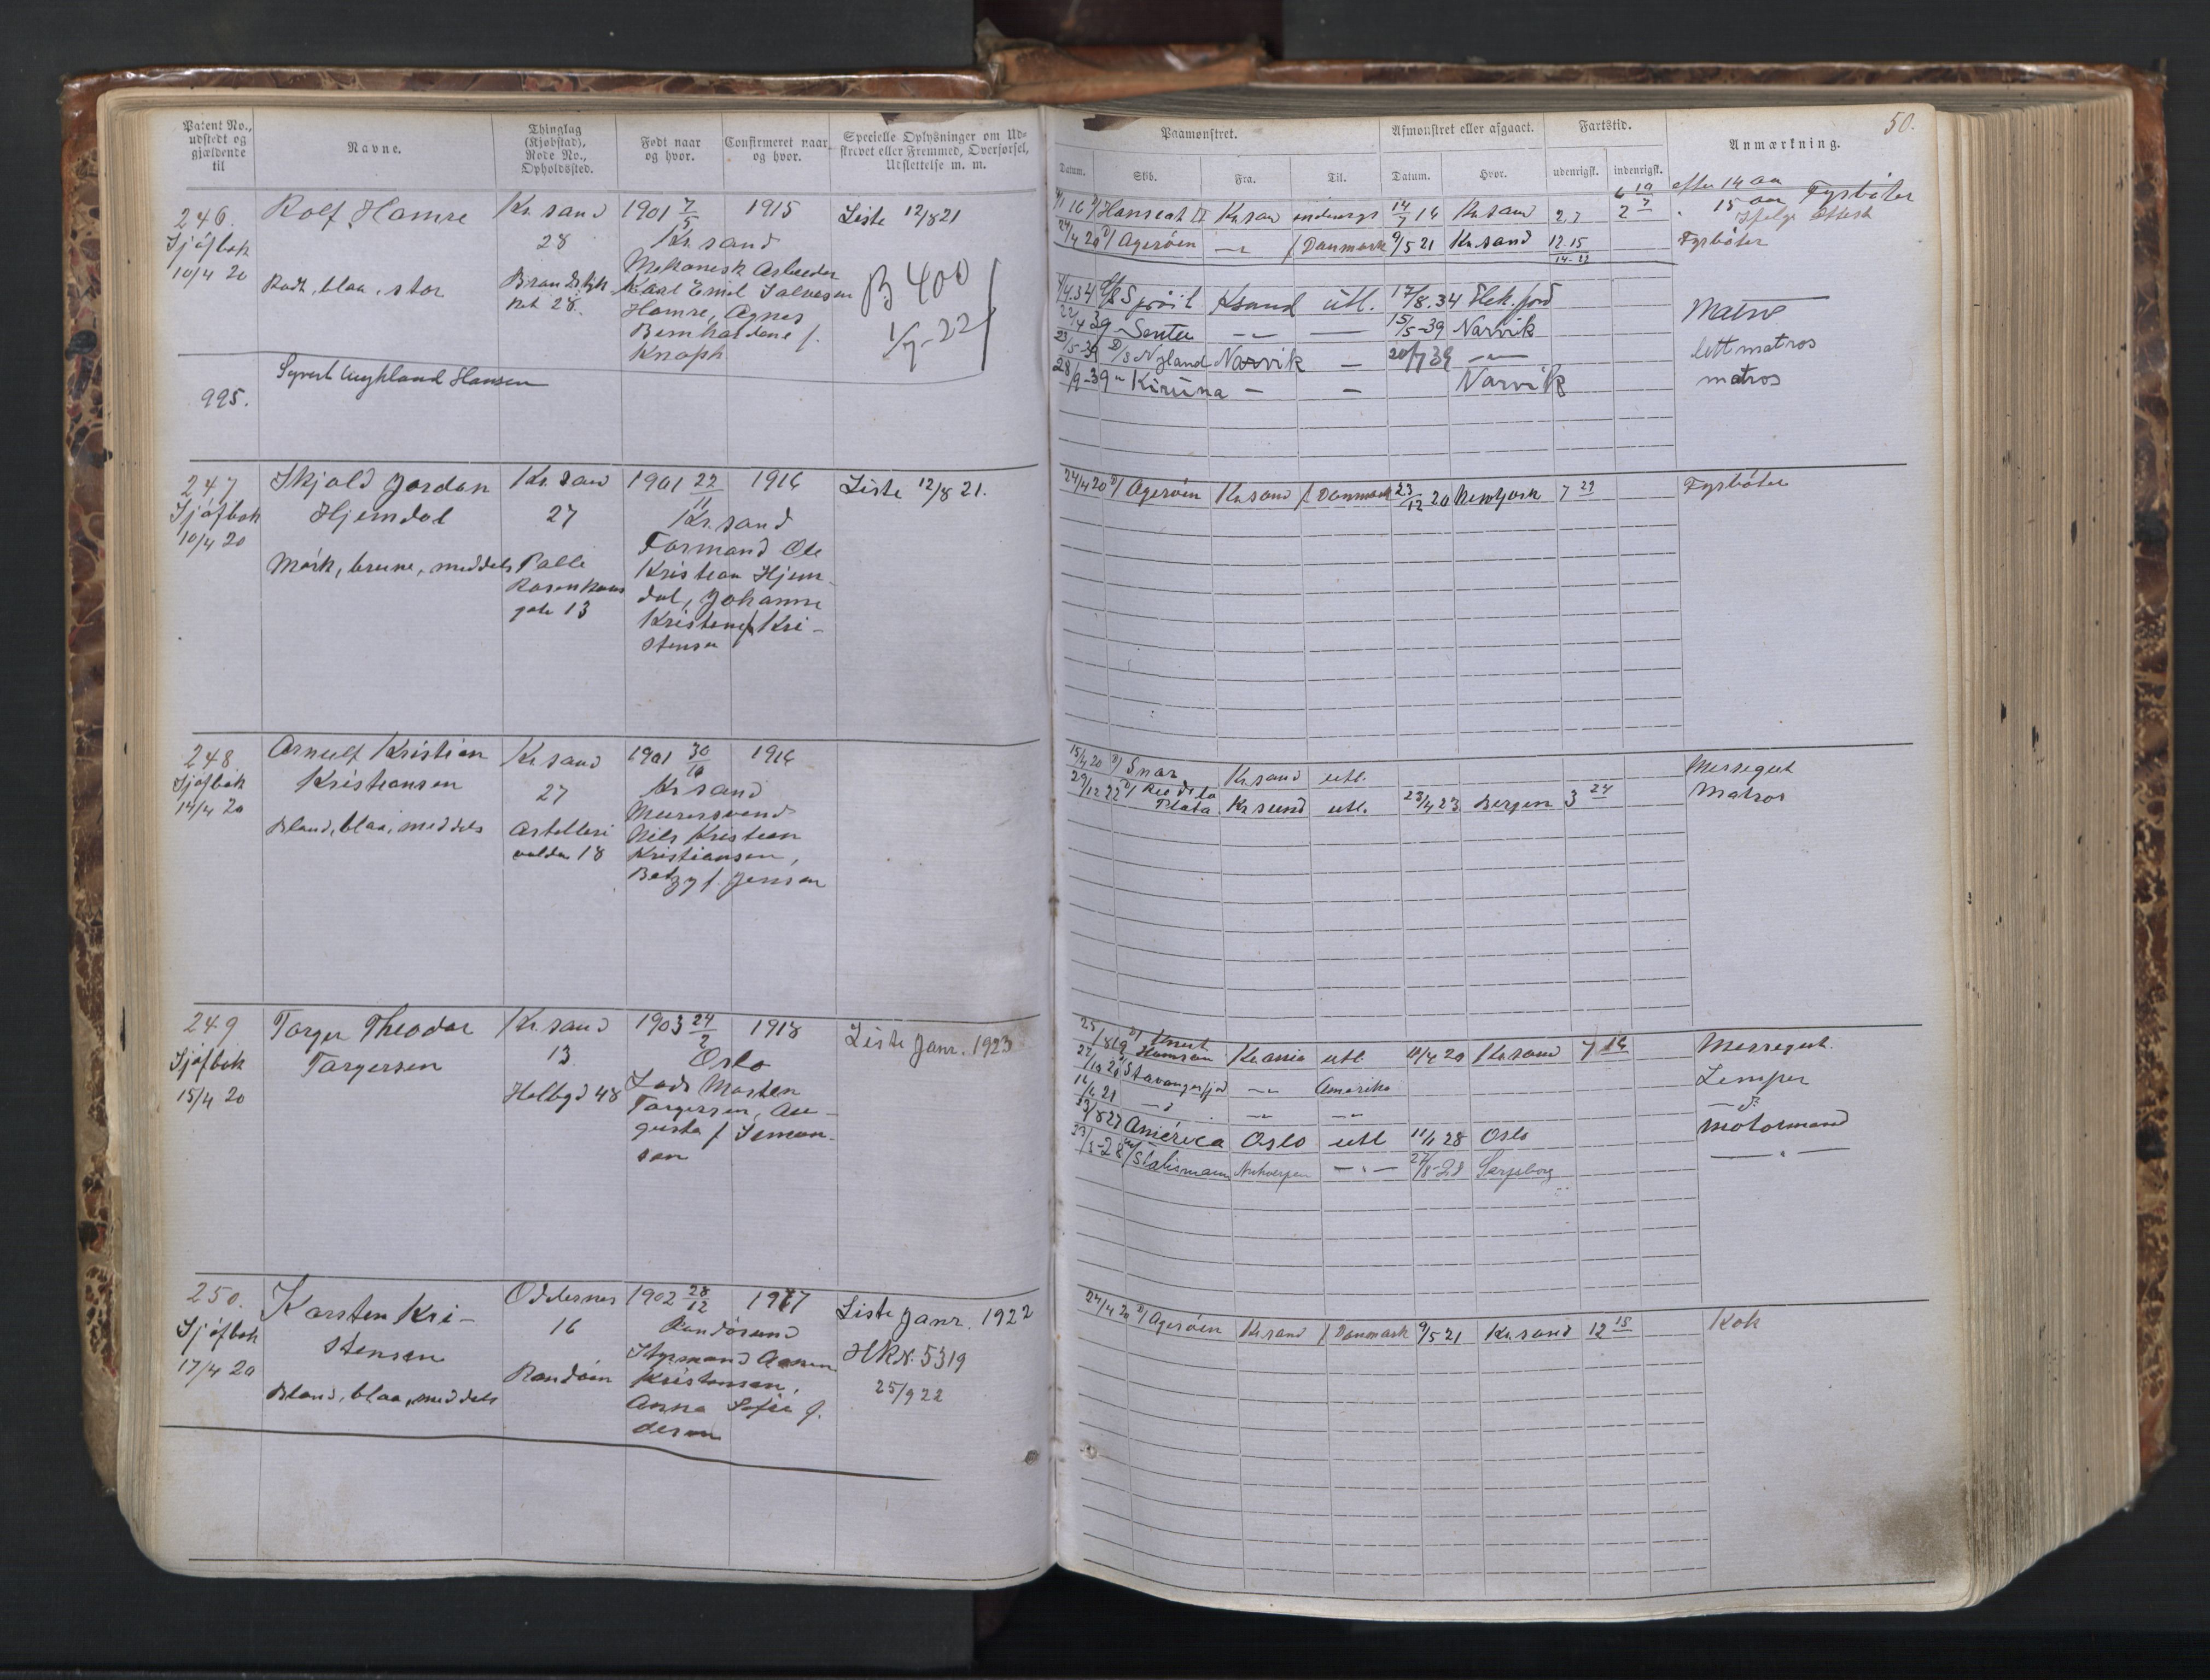 Patent No., udstedt og gjældende til
Navne.
Thinglag (Kjøbstad), Rode No., Opholdssted.
Født naar og hvor.
Confirmeret naar og hvor.
Specielle Oplysninger om Udskrevet eller Fremmed, Overførsel, Udslettelse m. m.
Paamønstret.
Afmønstret eller afgaaet.
Fartstid.
Anmærkning.
50.
Datum.
Skib.
Fra.
Til.
Datum.
Hvor.
udenrigsk.
indenrigsk.
246.
Sjöfbok
10/4 20
Rolf Hamre
Rødt, blaa, stor
Kr. sand
28
1901 7/5
Kr. sand
Mekanisk Arbeider
Karl Emil Salvesen
Hamre, Agnes
Bernhardine f.
Knaph
1915
Liste 12/8 21
B 400
1/7-22
16 Hanseat Kr. sand 14/7 16 Kr. sand 2 7
efter 14 aar
15 aar Fyrbøter
24/4 20 D/ Agerøen f Danmark 9/5 21 Kr. sand 12.15
Fyrbøter
Ksand utl. 17/8.34 Flek.fjord
22/4 39 Senta 15/5-39 Narvik
Matros
D/S Nyland Narvik — 20/7 39
lettmatros
28/9-39 " Kiruna — — Narvik
matros
995.
Hansen
247
Sjöfbok
10/4 20
Skjold Jordan
Hjemdal
Mørk, brune, middels
Kr. sand
27
Palle
Rosenkrans
gate 13
1901 22/11
Kr. sand
Formand Ole
Kristian Hjem-
dal, Johanne
Kristine f. Kri-
stensen
1916
Liste 12/8 21.
24/4 20 D/ Agerøen Kr. sand f Danmark 23/12 20 Newyork 7 29
Fyrbøter
248
Sjöfbok
14/4 20
Arnulf Kristian
Kristiansen
Blond, blaa, middels
Kr. sand
27
Artilleri
volden 18
1901 30/10
Kr. sand
Murersvend
Nils Kristian
Kristiansen,
Betzy f. Jensen
1916
15/4 20 D/ Snar Kr. sand utl.
Messegut
29/12 22 D/ Rio de la
Plata Kr. sund utl. 23/4 23 Bergen 3 24
Matros
249
Sjöfbok
15/4 20
Torger Theodor
Torgersen
Kr. sand
13
Holbgd 48
1903 24/2
Oslo
Lods Morten
Torgersen, Au-
gusta f Simon-
sen
1918
Liste Janr. 1923
25/8 19 D/ Knut
Hamsun Kr.ania utl. 10/4 20 Kr. sand 7 16
Messegut.
Stavangerfjord Amerika
Lemper
23/8 27 America Oslo utl 11/1 28 Oslo
Motormand
Antwerpen 27/8-28 Sarpsborg
250.
Sjöfbok
17/4 20
Karsten Kri-
stensen
Blond, blaa, middels
Oddernes
16
Randøen
1902 28/12
Randøsund
Styrmand
Kristensen,
Anna Sofie
1917
Liste Janr. 1922
HR N. 5319
25/9 22
24/4 20 D/ Agerøen Kr. sand f Danmark 9/5 21 Kr. sand 12 15
Kok